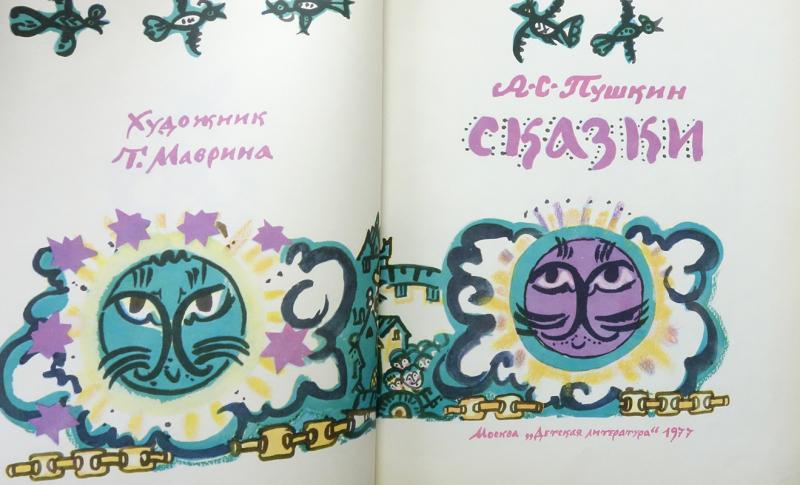 Художник
Т. Маврина
А·С·Пушкин
сказки
Москва „Детская литература“ 1977